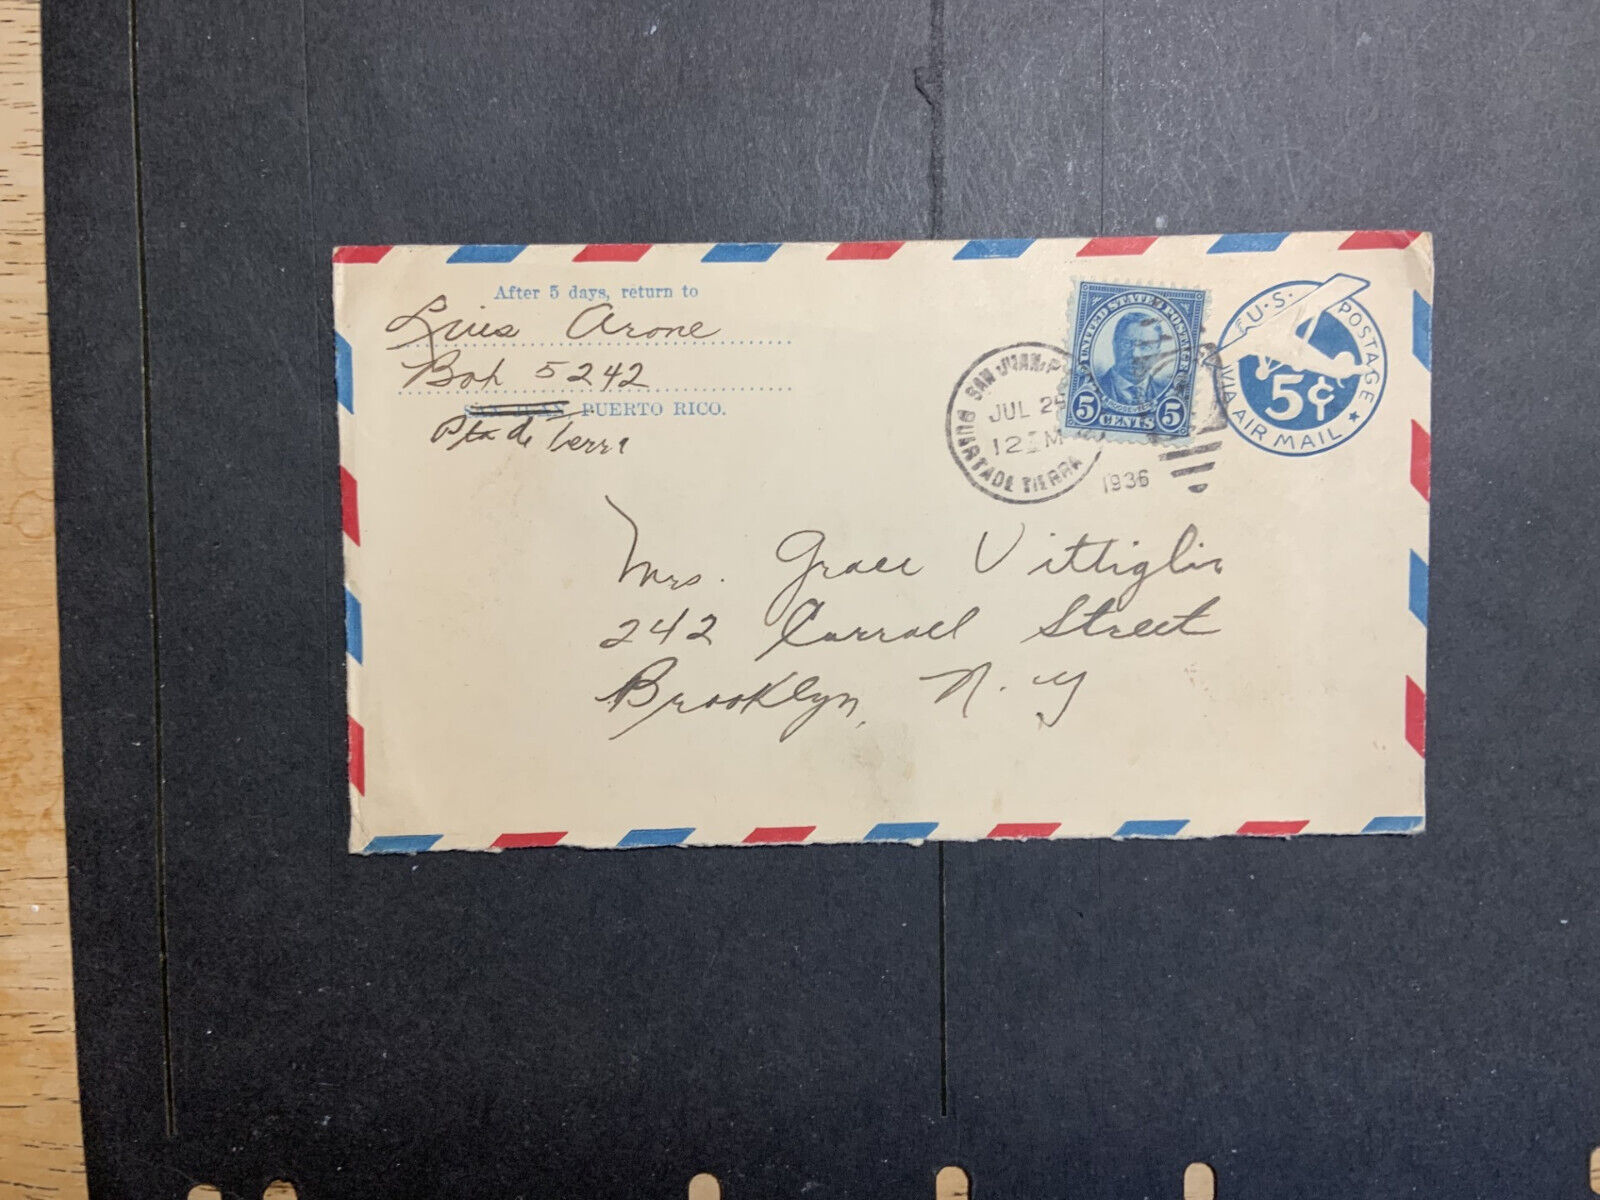 After 5 days, return to
Luis Arone
Box 5242
SAN JUAN, PUERTO RICO.
Pta de Terra
UNITED STATES POSTAGE
ROOSEVELT
5 CENTS 5
SAN JUAN, P.
JUL 25
12 M
PUERTA DE TIERRA
1936
U.S. POSTAGE
5¢
VIA AIR MAIL
Mrs. Grace Vittiglio
242 Carroll Street
Brooklyn, N.Y